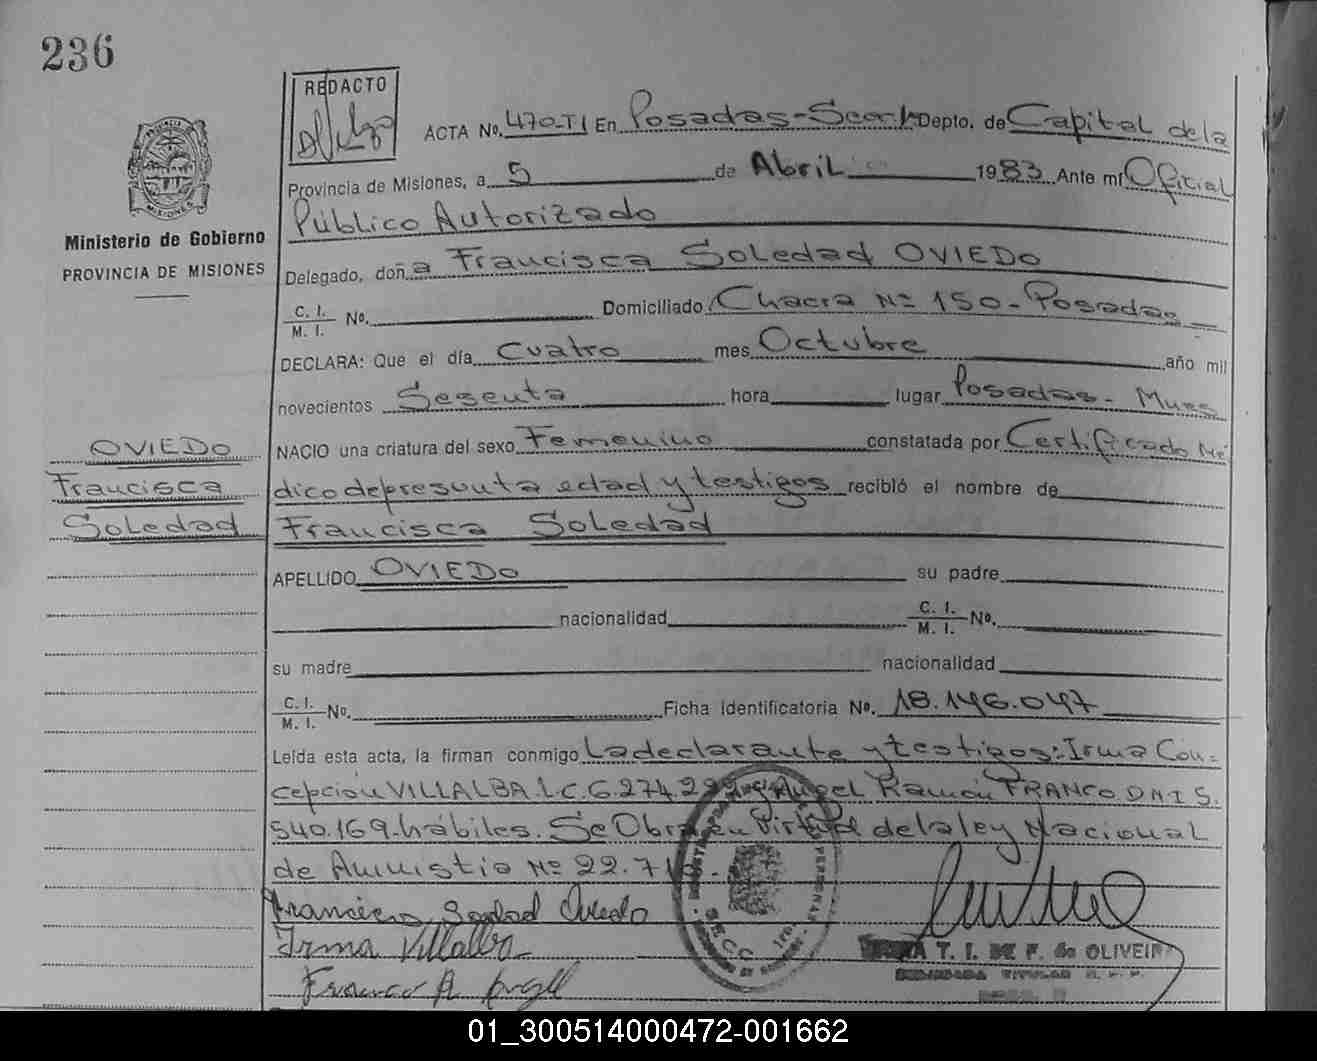 236
REDACTO
ACTA No. 470-T1 En Posadas-Secc. 1ª Depto. de Capital de la
Provincia de Misiones, a 5 de Abril 1983 Ante mí Oficial
Público Autorizado
Ministerio de Gobierno
PROVINCIA DE MISIONES
Delegado, doña Francisca Soledad OVIEDO
C. I.
M. I. No. Domiciliado Chacra Nº 150 - Posadas
DECLARA: Que el día Cuatro mes Octubre año mil
novecientos Sesenta hora lugar Posadas - Mnes
NACIO una criatura del sexo Femenino constatada por Certificado Mé
dico de presunta edad y testigos recibió el nombre de
Francisca Soledad
OVIEDO
Francisca
Soledad
APELLIDO OVIEDO su padre
nacionalidad C. I.
M. I. No.
su madre nacionalidad
C. I.
M. I. No. Ficha Identificatoria No. 18.146.047
Leída esta acta, la firman conmigo La declarante y testigos: Irma Con=
cepción VILLALBA L.C. 6.274. y Angel Ramón FRANCO D N I 5.
540.169. hábiles. Se Obra en Virtud de la ley Nacional
de Amnistia Nº 22.
Francisca Soledad Oviedo
Irma Villalba
Franco R Angel
T. I. DE F. de OLIVEIRA
01_300514000472-001662